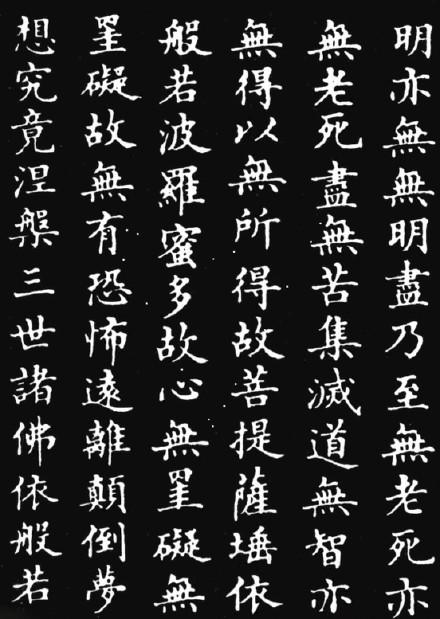 明亦無無明盡乃至無老死亦
無老死盡無苦集滅道無智亦
無得以無所得故菩提薩埵依
般若波羅蜜多故心無罣礙無
罣礙故無有恐怖遠離顛倒夢
想究竟涅槃三世諸佛依般若